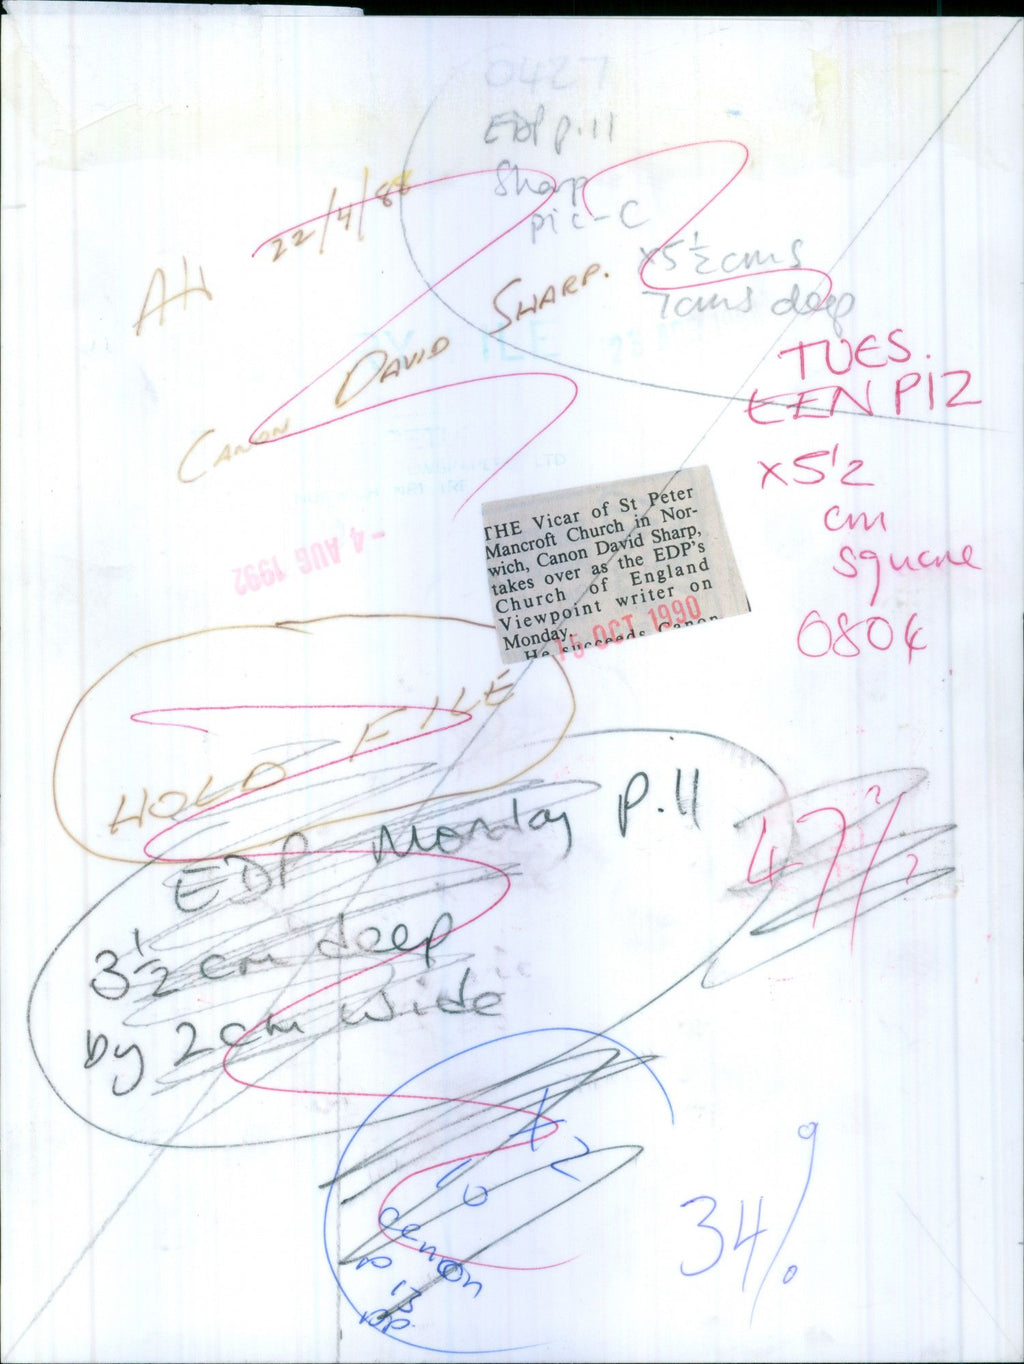 0427
EDP p.11
Sharp
pic-C
x5½cms
7cms deep
AH 22/4/88
CANON DAVID SHARP.
TUES.
EEN P12
x5½
cm
square
0804
- 4 AUG 1992
THE Vicar of St Peter
Mancroft Church in Nor-
wich, Canon David Sharp,
takes over as the EDP's
Church of England
Viewpoint writer on
Monday.
He succeeds Canon
15 OCT 1990
HOLD FILE
EDP Monday P.11
3½ cm deep
by 2cm wide
47%
x 2
canon
34%